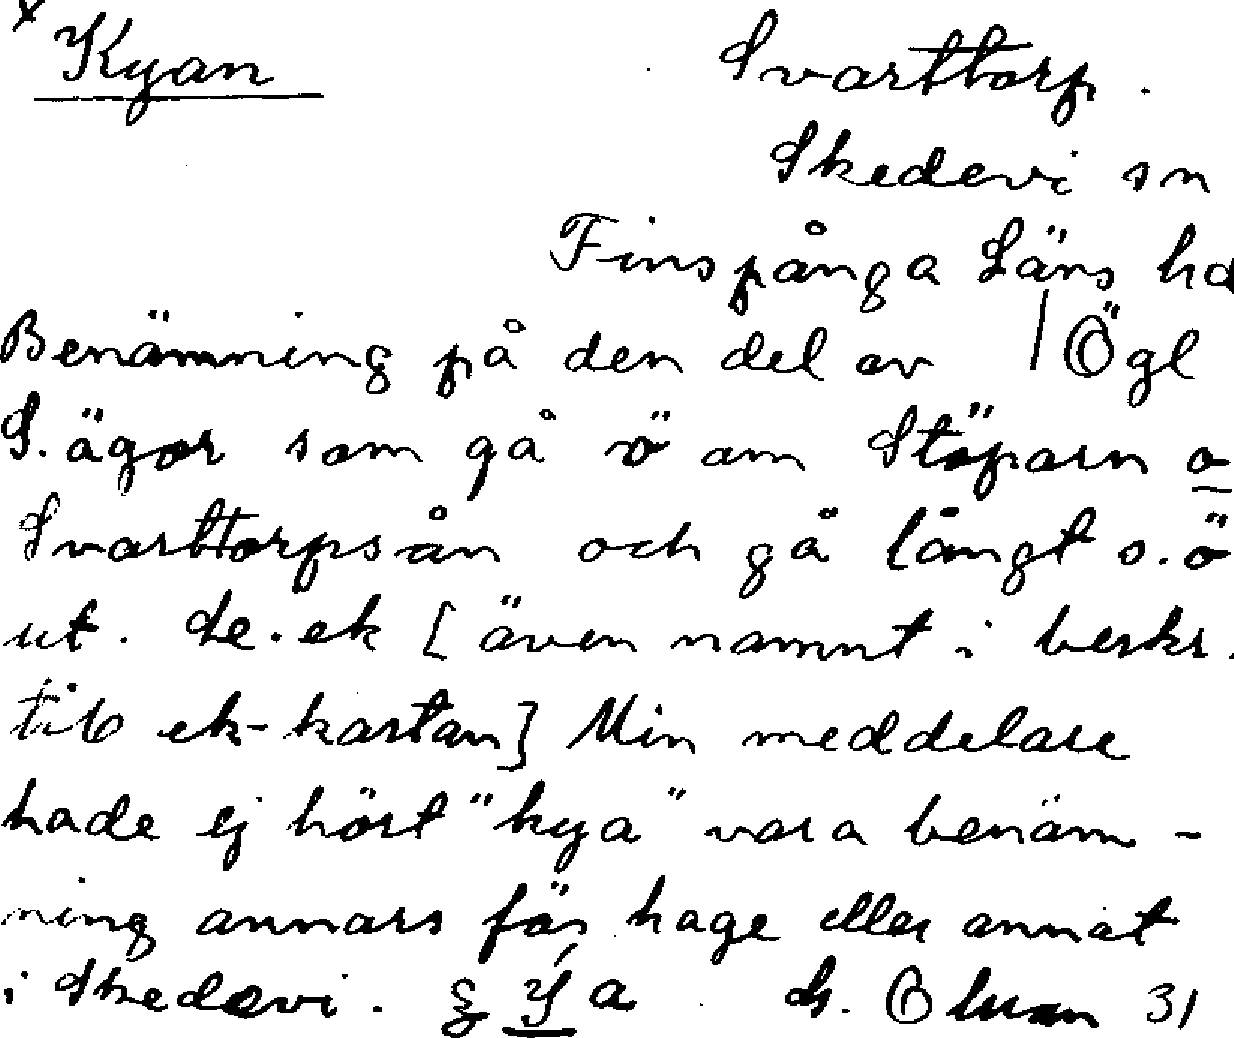 x Kyan Svarttorp.
Skedevi sn
Finspånga Läns hd
Benämning på den del av | Ögl
S. ägor som gå ö om Stöparn o
Svarttorpsån och gå långt s.ö
ut. Le. ek [även namnt i beskr.
till ek-kartan] Min meddelare
hade ej hört "kya" vara benäm-
ning annars för hage eller annat
i Skedevi. a 31